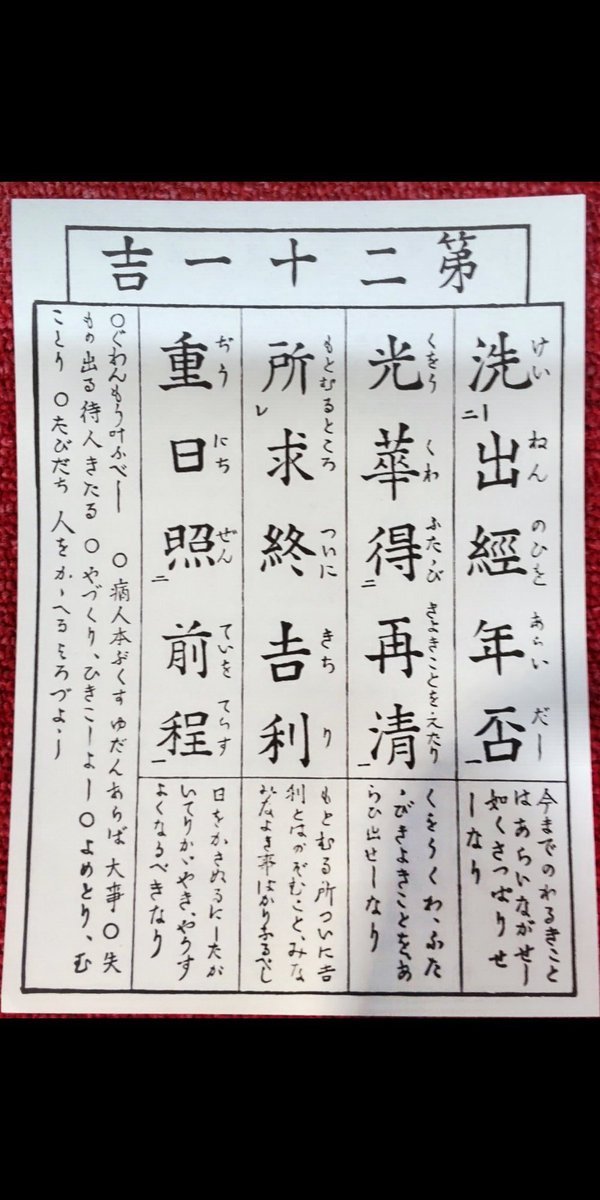 第二十一吉
けいねんのひをあらいだし
洗出經年否
今までのわるきこと
はあらいながせし
如くさつぱりせ
しなり
くをうくわふたゝびきよきことをえたり
光華得再清
くをうくわ、ふた
ゝびきよきことをあ
らひ出せしなり
もとむるところついにきちり
所求終吉利
もとむる所ついに吉
利とはのぞむこと、みな
みなよき事ばかりなるべし
ぢうにちぜんていをてらす
重日照前程
日をかさぬるにしたが
いてりかゞやき、やうす
よくなるべきなり
○ぐわんもう叶ふべし ○病人本ぶくす ゆだんあらば大事 ○失
もの出る待人きたる ○やづくり、ひきこしよし ○よめとり、む
ことり ○たびだち 人をかゝへるよろづよし